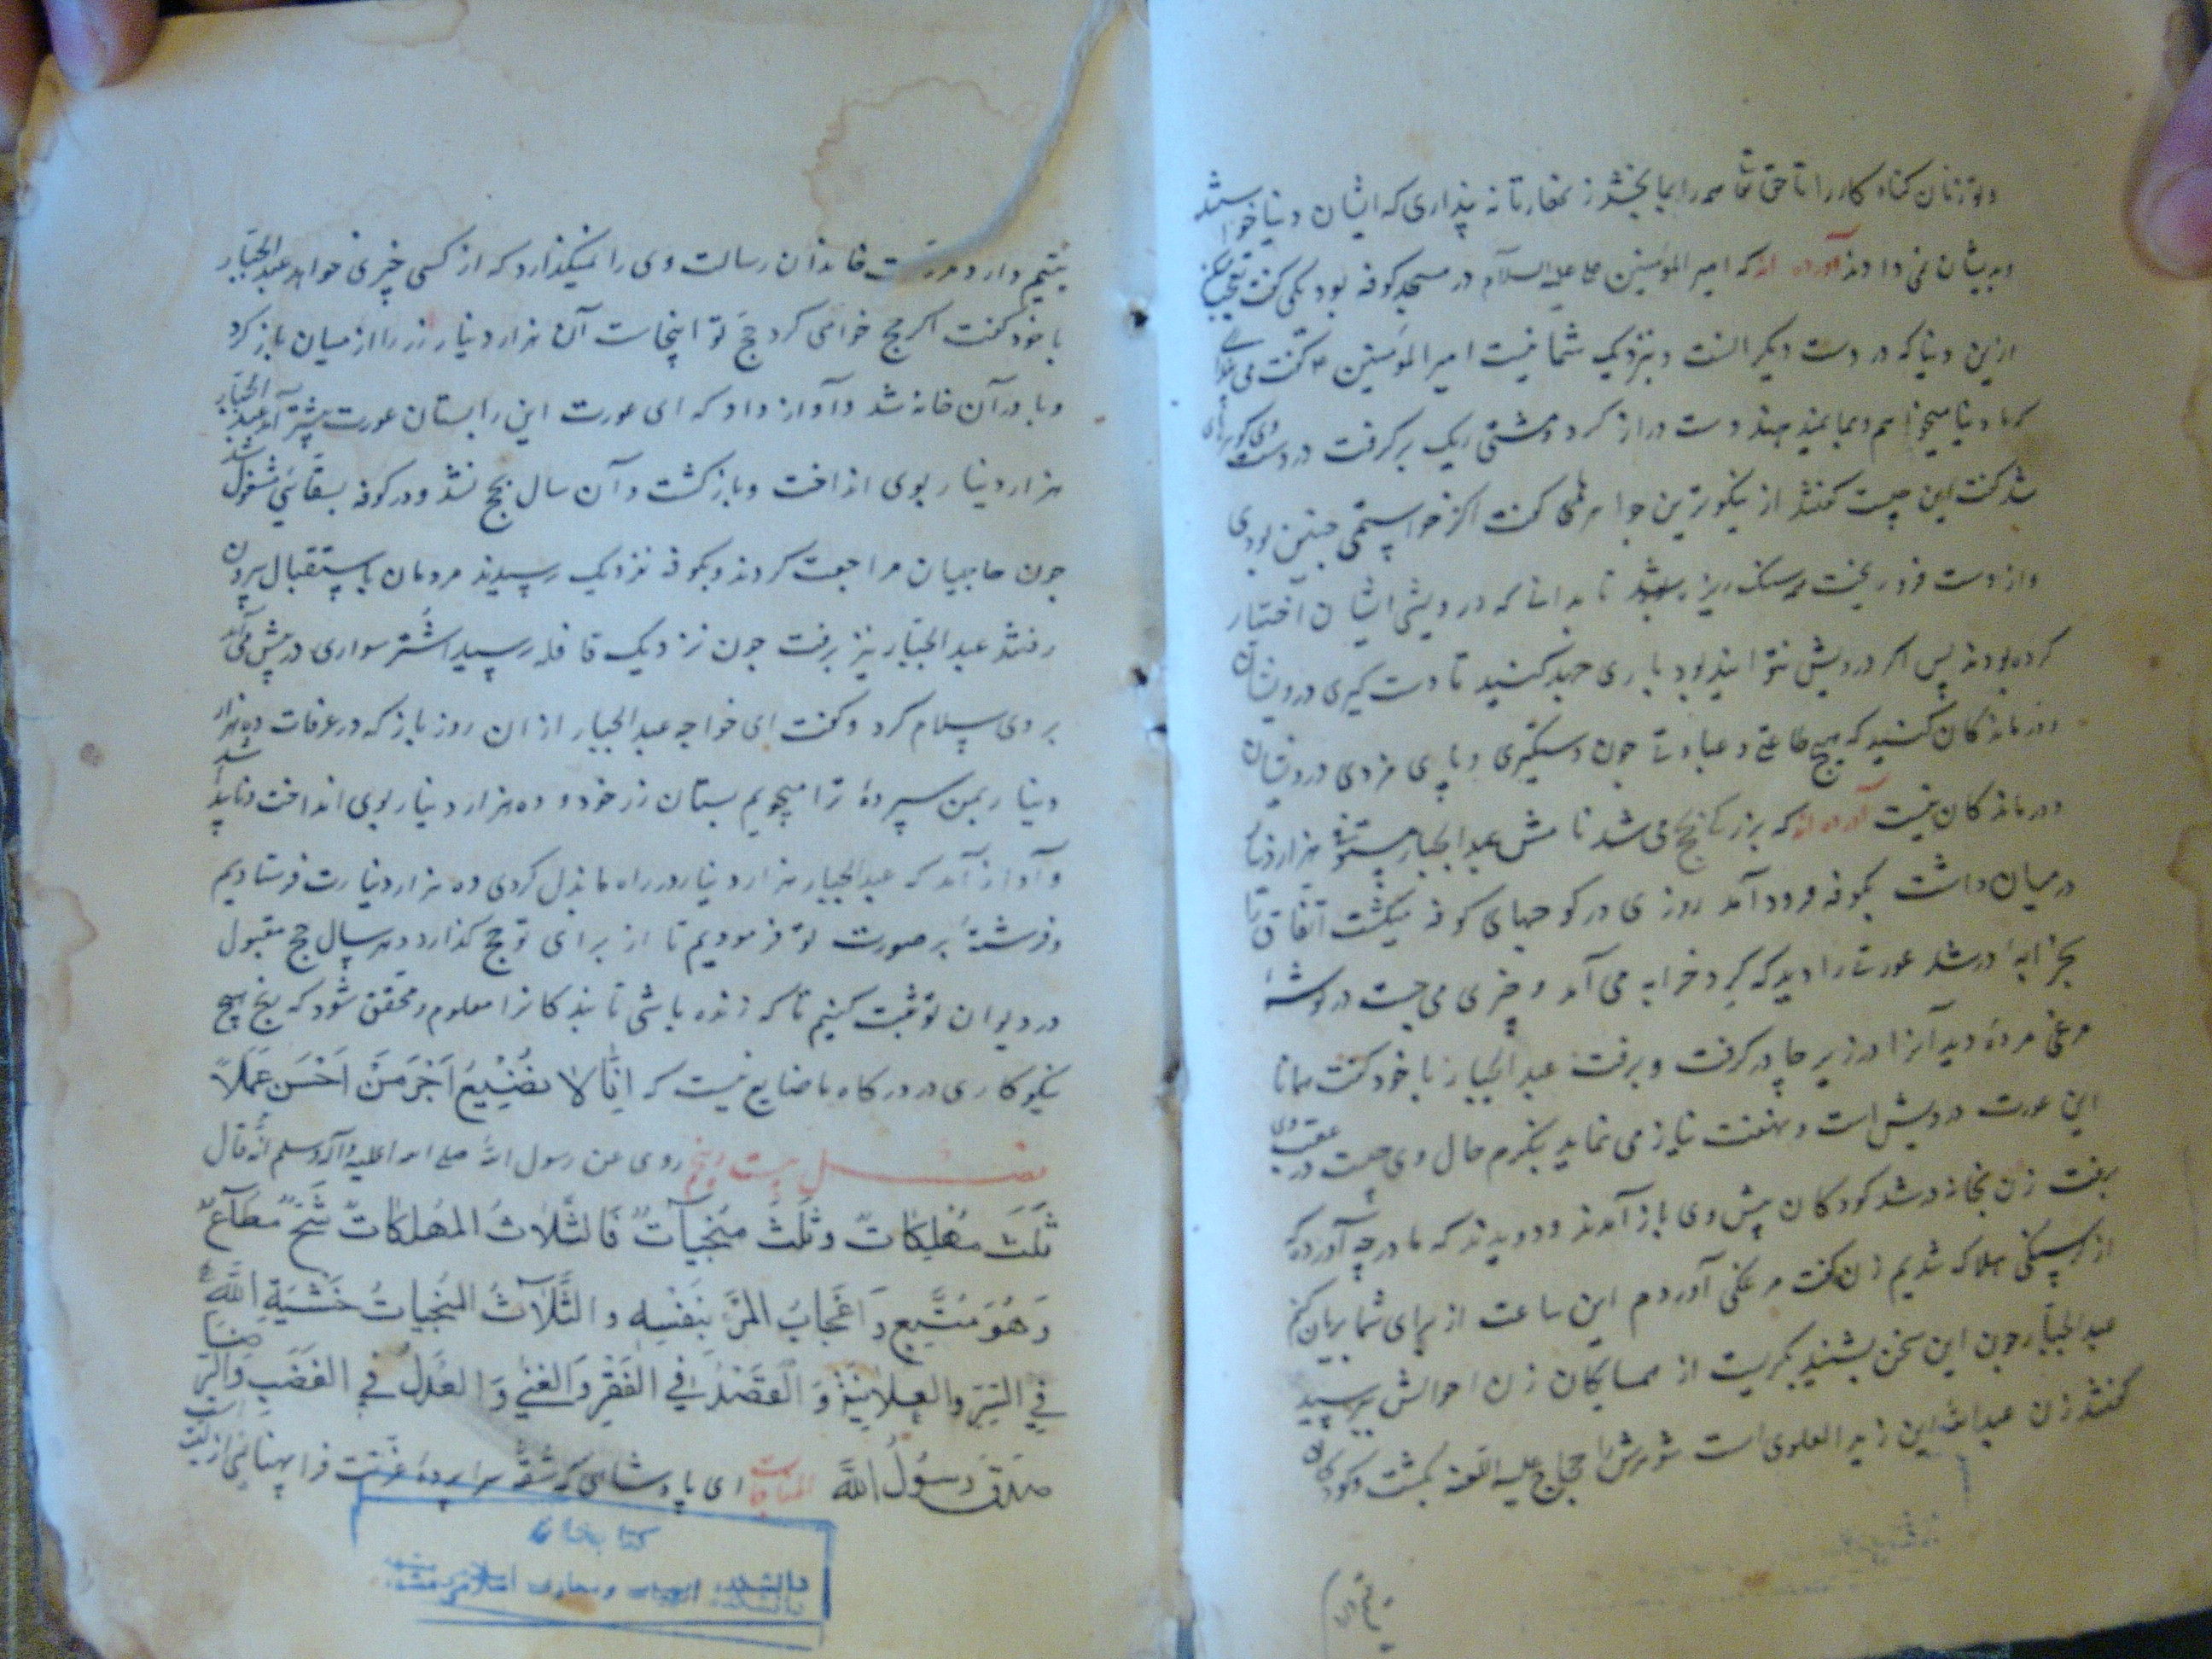 و تو زنان گناه کار را تا حق تعا همه را بما بخشد زنهار تا نه پنداری که ایشان دنیا خواستند
و بدیشان نمی دادند آورده اند که امیر المؤمنین علی علیه السلام در مسجد کوفه بود یکی گفت
ازین دنیا که در دست دیگر انست و بنزدیک شما نیست امیر المؤمنین ع گفت می
که ما دنیا میخواهم و بما نمیدهند دست دراز کرد و مشتی ریک بر کرفت در دست وی کوهرهای
شد گفت این چیست گفتند از نیکوترین جواهرها گفت اکر خواستمی چنین بودی
و از دست فرو ریخت همه سنک ریزه شد تا بدانی که درویشی ایشان اختیار
کرده بودند پس اکر درویش نتوانید بود باری جهد کنید تا دست کیری درویشان
و درماندکان کنید که هیچ طاعتی و عبادتی چون دستکیری و پای مزدی درویشان
و درماندکان نیست آورده اند که بزرگی بحج می شد نامش عبد الجبار مستوفی هزار دینار
در میان داشت بکوفه فرود آمد روزی در کوچهای کوفه میکشت اتفاق را
بخرابهٔ در شد عورتی را دید که کرد خرابه می آمد و چیزی می جست در کوشهٔ
مرغی مردهٔ دید آنرا در زیر چادر کرفت و برفت عبد الجبار با خود گفت همانا
این عورت درویش است و نهفت نیاز می نماید بنکرم حال وی چیست در عقب وی
برفت زن بخانه در شد کودکان پیش وی باز آمدند و دویدند که ما در چه آوردهٔ که
از کرسنکی هلاک شدیم زن گفت مرغکی آوردم این ساعت از برای شما بریان کنم
عبد الجبار چون این سخن بشنید بکریست از همسایکان زن احوالش بپرسید
گفتند زن عبد الله ابن زید العلوی است شوهرش را حجاج علیه اللعنه بکشت و کودکان
یتیم دارد و مروّت خاندان رسالت وی را نمیکذارد که از کسی چیزی خواهد عبد الجبار
با خود گفت اکر حج خواهی کرد حج تو اینجاست آن هزار دینار زر را از میان باز کرد
و با در آن خانه شد و آواز داد که ای عورت این را بستان عورت پیشتر آمد عبد الجبار
هزار دینار بوی انداخت و باز کشت و آن سال بحج نشد و در کوفه بسقایی مشغول شد
چون حاجیان مراجعت کردند و بکوفه نزدیک رسیدند مردمان باستقبال بیرون
رفتند عبد الجبار نیز برفت چون نزدیک قافله رسید اشتر سواری در پیش می آمد
بر وی سلام کرد و گفت ای خواجه عبد الجبار از ان روز باز که در عرفات ده هزار
دینار بمن سپردهٔ ترا میجویم بستان زر خود و ده هزار دینار بوی انداخت و ناپیدا شد
و آواز آمد که عبد الجبار هزار دینار در راه ما بذل کردی ده هزار دینارت فرستادیم
و فرشتهٔ بر صورت تو فرمودیم تا از برای تو حج کذارد و هر سال حج مقبول
در دیوان تو ثبت کنیم تا که زنده باشی تا بندکانرا معلوم و محقق شود که رنج هیچ
نیکو کاری در درکاه ما ضایع نیست که اِنّا لا نُضِیعُ اَجْرَ مَنْ اَحْسَنَ عَمَلاً
فصل بیست و پنجم روی عن رسول الله صلی الله علیه و آله و سلم انّه قال
ثَلَثُ مُهْلِکاتٌ وَثَلَثٌ مُنْجِیاتٌ فَالثَّلاثُ المُهْلِکاتُ شُحٌّ مُطاعٌ
وَهُوَی مُتَّبِع وَاِعْجابُ المَرْءِ بِنَفْسِه وَالثَّلاثُ المُنْجِیاتُ خَشْیَةُ اللهِ
فِی السِّرِّ وَالعَلانِیَةِ وَالقَصْدُ فِی الفَقْرِ وَالغِنی وَالعَدْلُ فِی الغَضَبِ وَالرِّضا
صَدَقَ رَسُولُ اللهِ المناجات ای پادشاهی که شقّهٔ سراپردهٔ عزّتت
کتابخانه
دانشکده الهیات و معارف اسلامی مشهد